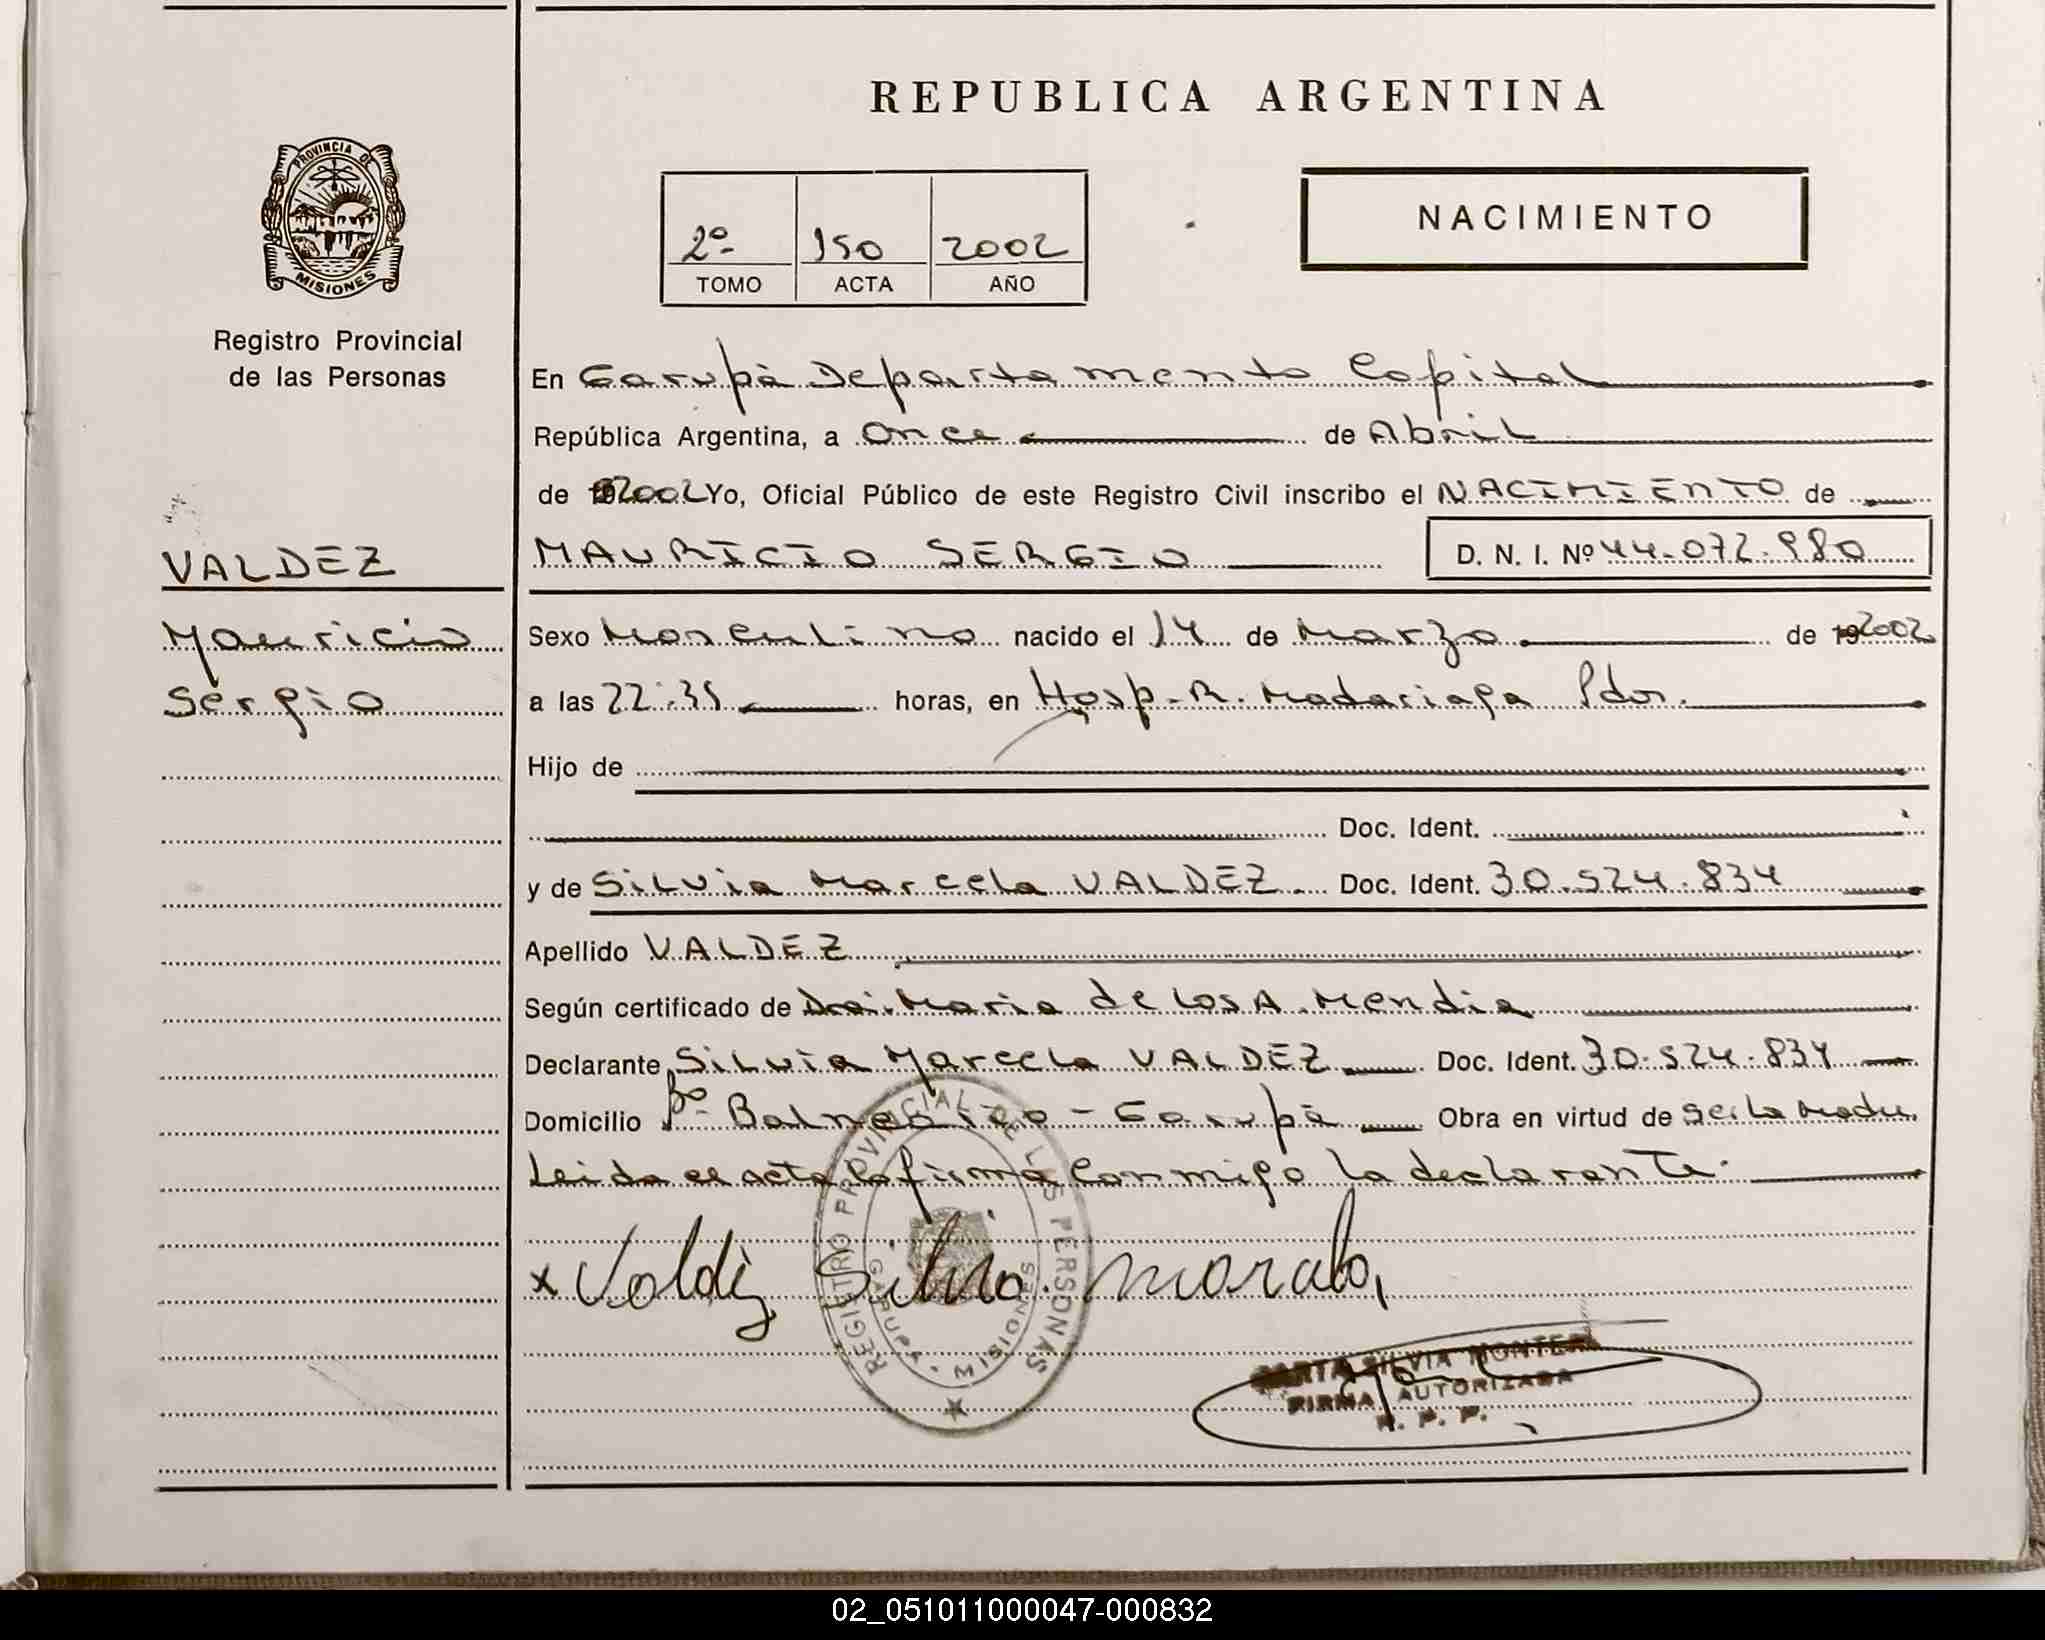 REPUBLICA ARGENTINA
PROVINCIA DE MISIONES
Registro Provincial
de las Personas
2º TOMO
150 ACTA
2002 AÑO
NACIMIENTO
En Garupá Departamento Capital
República Argentina, a once de Abril
de 2002 Yo, Oficial Público de este Registro Civil inscribo el NACIMIENTO de
VALDEZ
Mauricio
Sergio
MAURICIO SERGIO D. N. I. Nº 44.072.980
Sexo Masculino nacido el 14 de Marzo de 2002
a las 22:35 horas, en Hosp. R. Madariaga Pdas.
Hijo de
Doc. Ident.
y de Silvia Marcela VALDEZ. Doc. Ident. 30.524.834
Apellido VALDEZ
Según certificado de Dra. Maria de los A. Mendia
Declarante Silvia Marcela VALDEZ Doc. Ident. 30.524.834
Domicilio Bº Balneario - Garupá Obra en virtud de ser la madre.
Leida el acta la firma conmigo la declarante.
x Valdez Silvia
REGISTRO PROVINCIAL DE LAS PERSONAS
GARUPA - MISIONES
SILVIA
FIRMA AUTORIZADA
R. P. P.
02_051011000047-000832